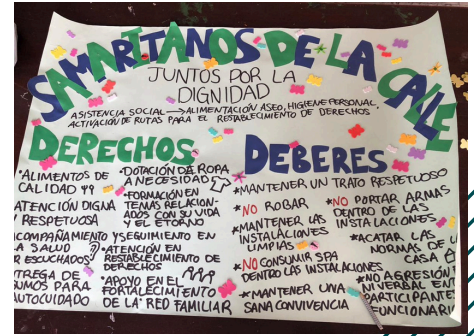 SAMARITANOS DE LA CALLE
JUNTOS POR LA
DIGNIDAD
ASISTENCIA SOCIAL → ALIMENTACIÓN ASEO, HIGIENE PERSONAL,
ACTIVACIÓN DE RUTAS PARA EL RESTABLECIMIENTO DE DERECHOS
DERECHOS
*ALIMENTOS DE
CALIDAD
ATENCIÓN DIGNA
Y RESPETUOSA
ACOMPAÑAMIENTO Y SEGUIMIENTO EN
A SALUD
R ESCUCHADOS
TREGA DE
UMOS PARA
AUTOCUIDADO
*DOTACIÓN DE ROPA
A NECESIDAD
*FORMACIÓN EN
TEMAS RELACION-
ADOS CON SU VIDA
Y EL ETORNO
*ATENCIÓN EN
RESTABLECIMIENTO DE
DERECHOS
*APOYO EN EL
FORTALECIMIENTO
DE LA RED FAMILIAR
DEBERES
*MANTENER UN TRATO RESPETUOSO
*NO ROBAR
*MANTENER LAS
INSTALACIONES
LIMPIAS
*NO CONSUMIR SPA
DENTRO LAS INSTALACIONES
*MANTENER UNA
SANA CONVIVENCIA
*NO PORTAR ARMAS
DENTRO DE LAS
INSTALACIONES
*ACATAR LAS
NORMAS DE L
CASA
*NO AGRESIÓN
NI VERBAL ENT
PARTICIPANTE
FUNCIONARI